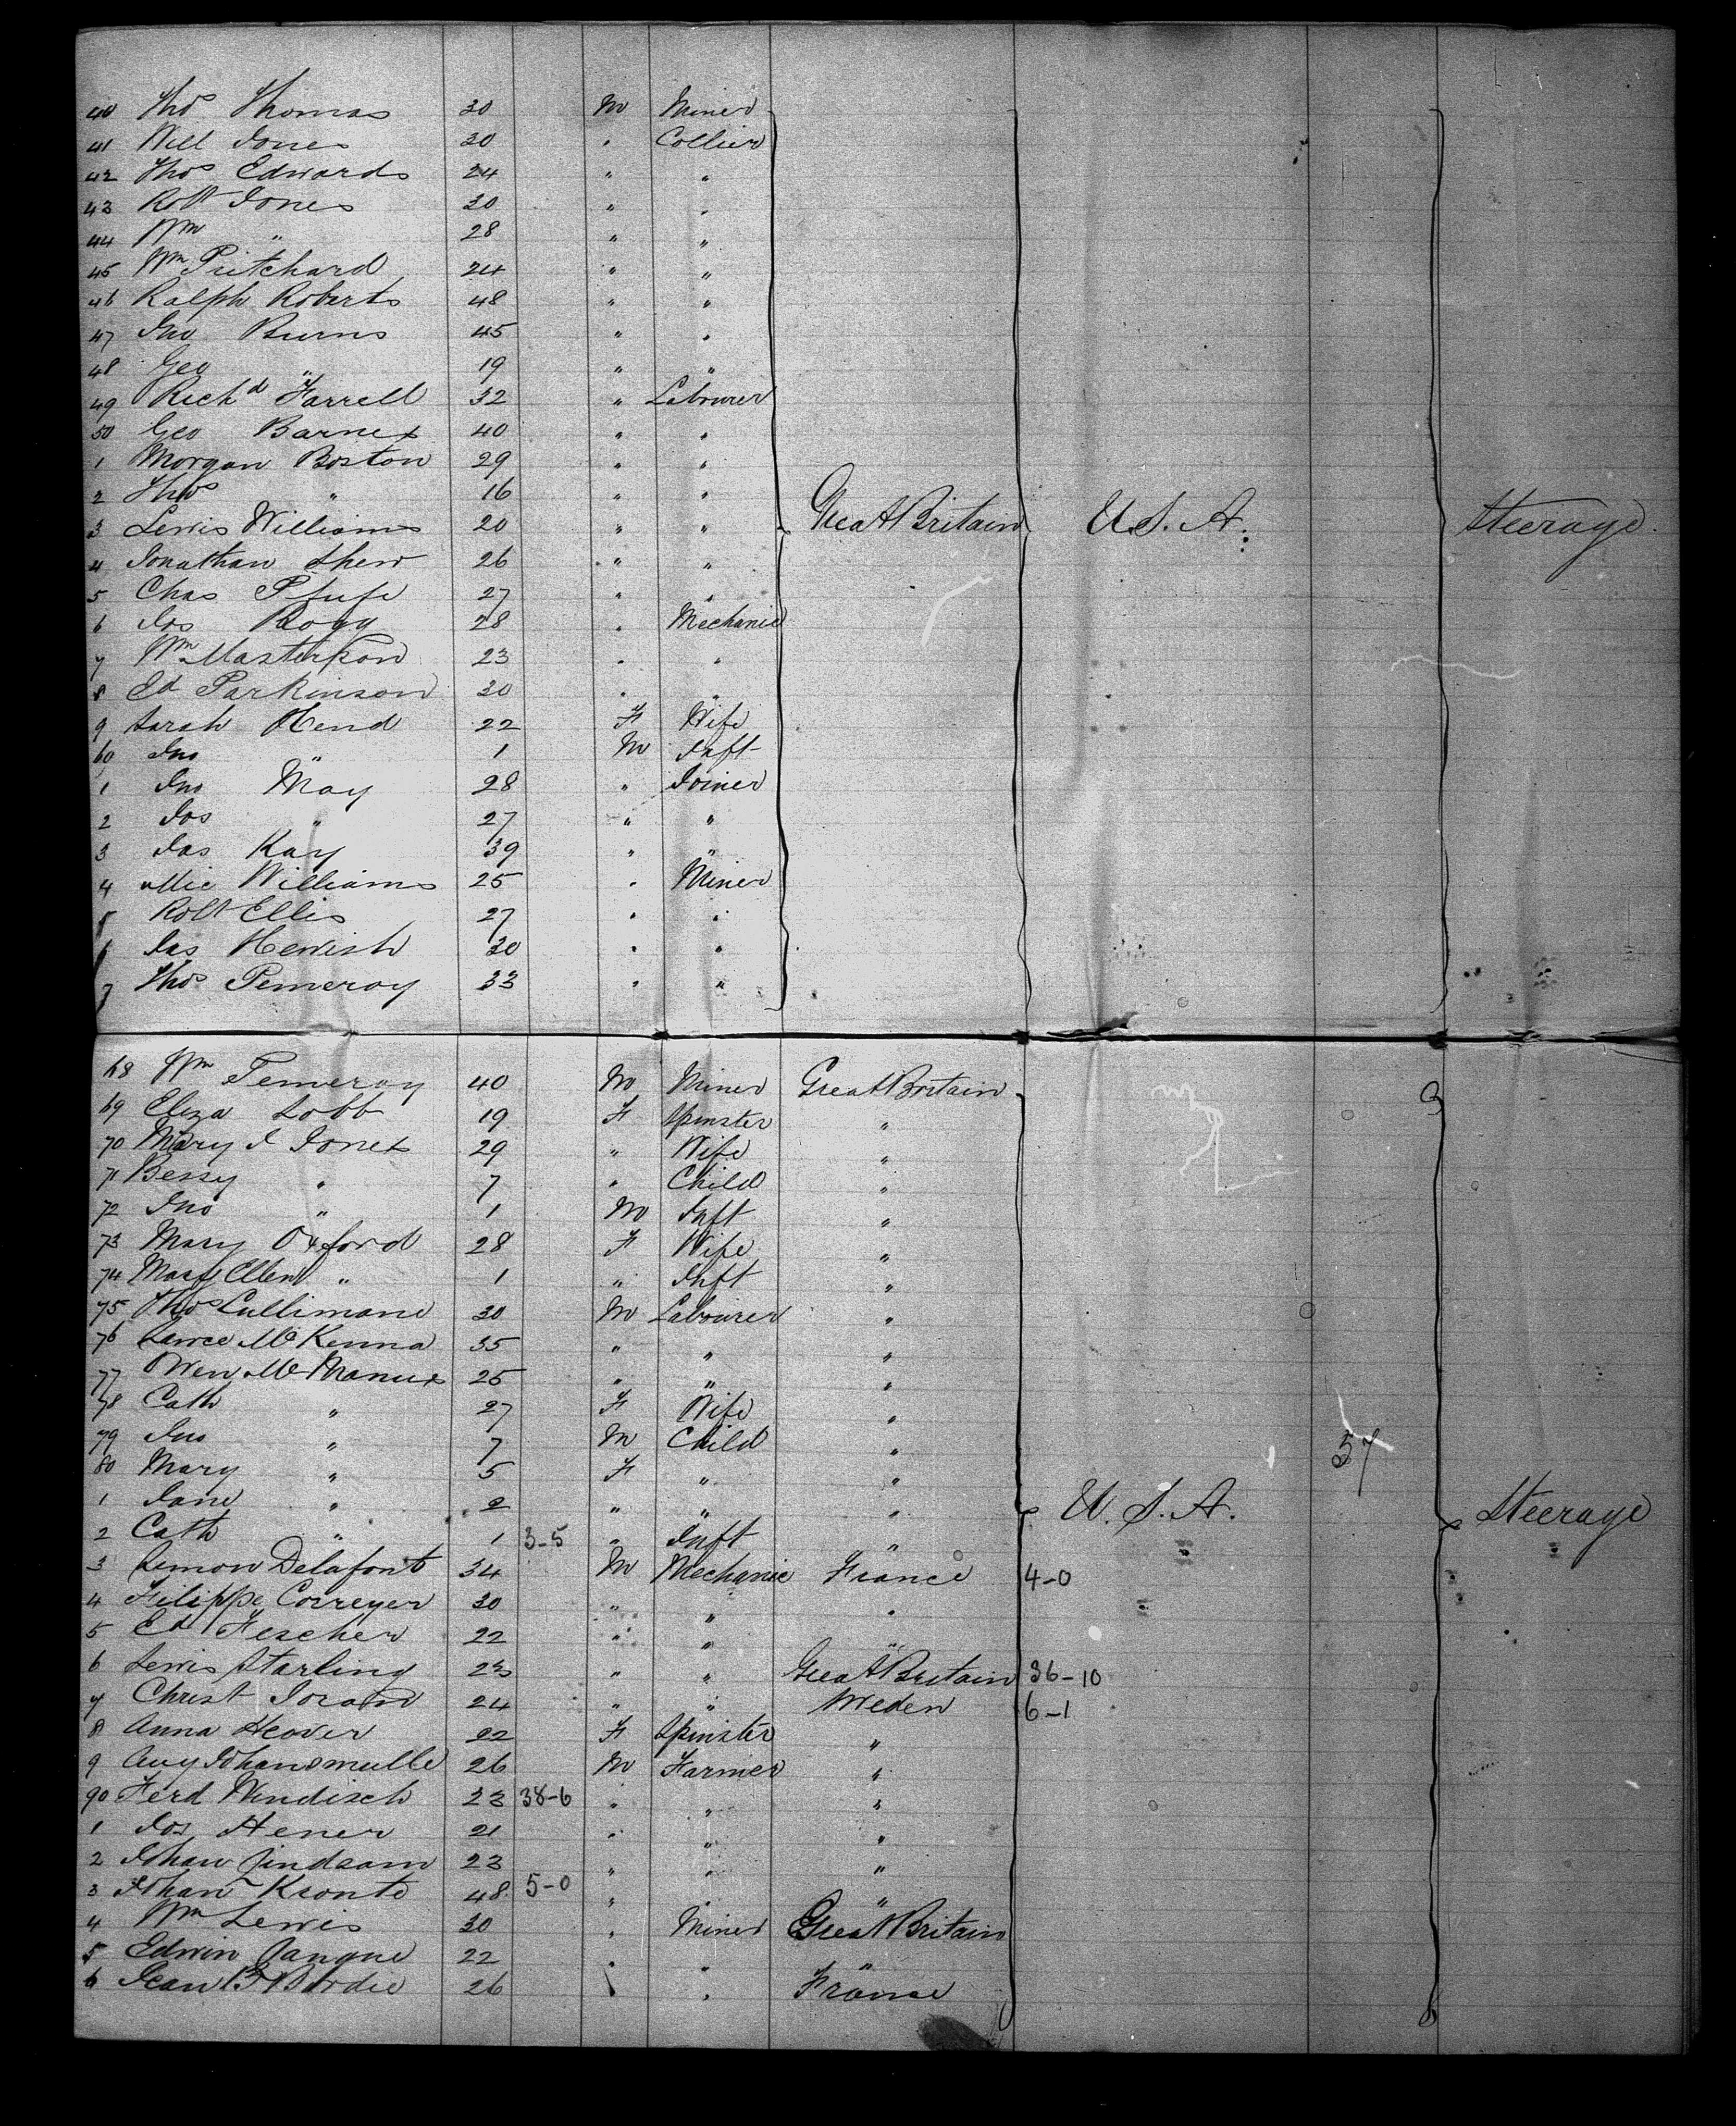 40 Thos Thomas 30 M Miner
41 Will Jones 30 " Collier
42 Thos Edwards 24 " "
43 Robt Jones 30 " "
44 Wm " 28 " "
45 Wm Pritchard 24 " "
46 Ralph Roberts 48 " "
47 Jno Burns 45 " "
48 Geo " 19 " "
49 Richd Farrell 32 " Labourer
50 Geo Barnes 40 " "
1 Morgan Boston 29 " "
2 Thos " 16 " "
3 Lewis Williams 20 " " Great Britain U.S.A. Steerage
4 Jonathan Shew 26 " "
5 Chas 27 " "
6 Jos Bogg 28 " Mechanic
7 Wm Masterson 23 " "
8 Ed Parkinson 30 " "
9 Sarah Hend 22 F Wife
60 Jno " 1 M Inft
1 Jno May 28 " Joiner
2 Jos " 27 " "
3 Jas Kay 39 " "
4 Mic Williams 25 " Miner
5 Robt Ellis 27 " "
6 Jas Hewish 30 " "
7 Thos Pemeroy 33 " "
68 Wm Pemeroy 40 M Miner Great Britain
69 Eliza Lobb 19 F Spinster "
70 Mary J Jones 29 " Wife "
71 Bessy " 7 " Child "
72 Jno " 1 M Inft "
73 Mary Oxford 28 F Wife "
74 Mary Ellen " 1 " Inft "
75 Thos Cullimane 30 M Labourer "
76 Lawce McKenna 35 " " "
77 Owen McManus 25 " " "
78 Cath " 27 F Wife "
79 Jno " 7 M Child " 57
80 Mary " 5 F " "
1 Jane " 2 " " " U.S.A. Steerage
2 Cath " 1 3-5 " Inft "
3 Semon Delafont 34 M Mechanic France 4-0
4 Filippe Correyer 30 " " "
5 Ed Fescher 22 " " "
6 Lewis Starling 23 " " Great Britain 36-10
7 Christ 24 " " Sweden 6-1
8 Anna Heover 22 F Spinster "
9 Aug Johansmulle 26 M Farmer "
90 Ferd Windisch 23 38-6 " " "
1 Jos Hener 21 " " "
2 Johan Jindsam 23 " " "
3 Johan Kronte 48 5-0 " " "
4 Wm Lewis 30 " Miner Great Britain
5 Edwin 22 " " "
6 Jean B Bordie 26 " " France